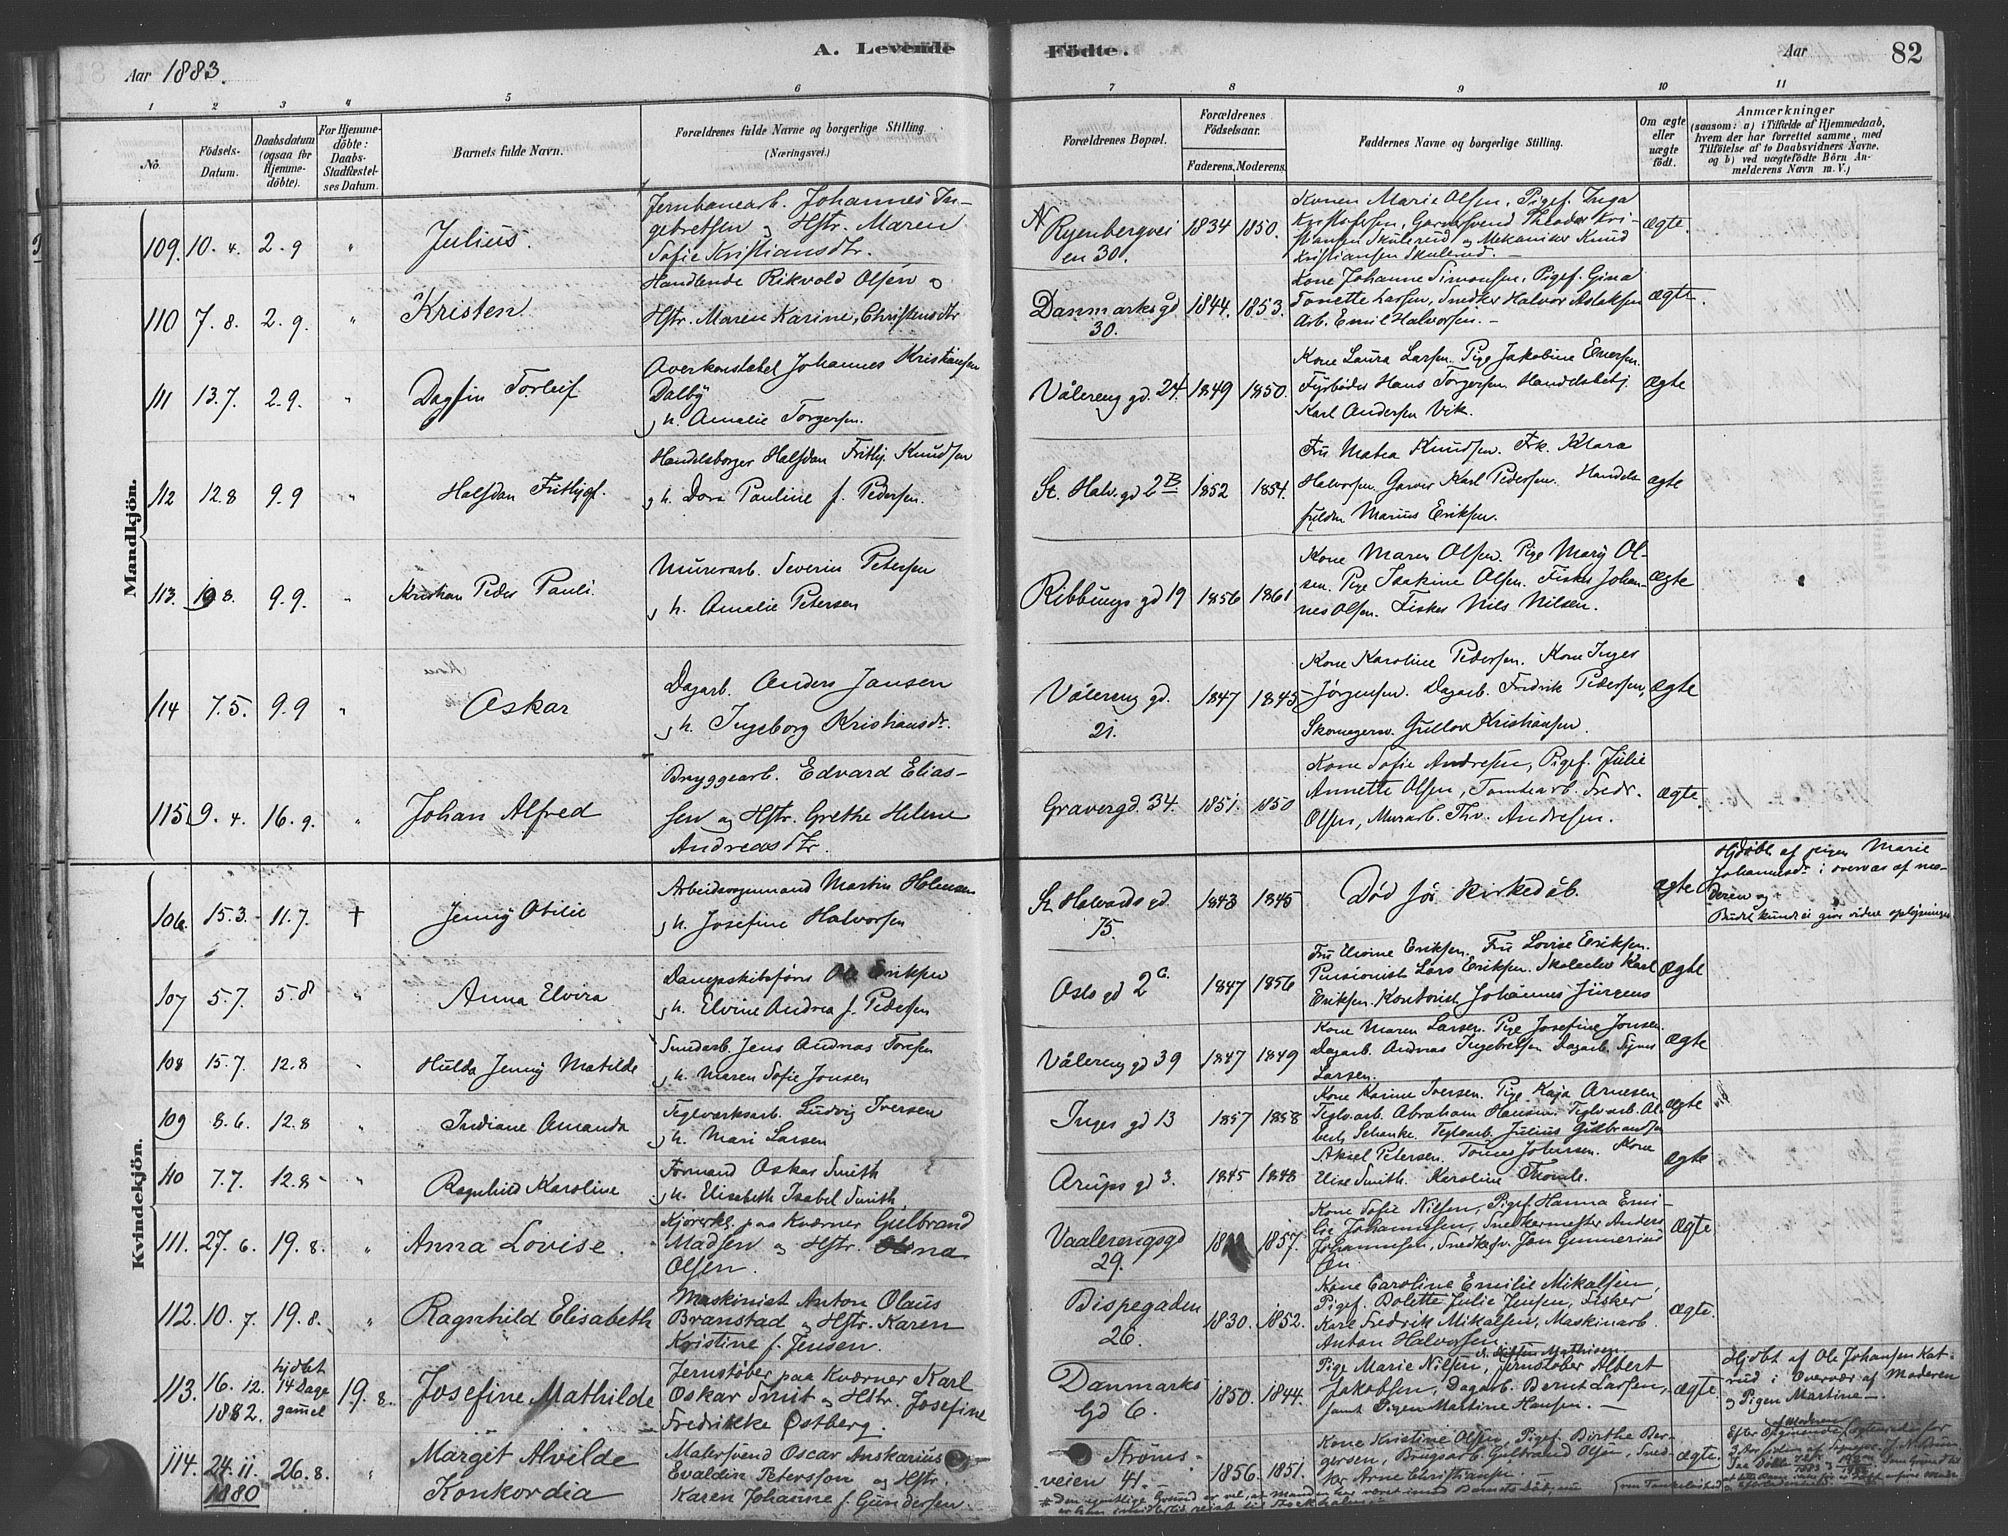 A. Levende Fødte.
Aar 1883.
Aar
82
1 2 3 4 5 6 7 8 9 10 11
No.
Fødsels-
Datum.
Daabsdatum
(ogsaa før
Hjemme-
døbte).
For Hjemme-
døbte:
Daabs-
Stadfæstel-
ses Datum.
Barnets fulde Navn.
Forældrenes fulde Navne og borgerlige Stilling
(Næringsvei.)
Forældrenes Bopæl.
Forældrenes
Fødselsaar.
Faderens. Moderens.
Faddernes Navne og borgerlige Stilling.
Om ægte
eller
uægte
født.
Anmærkninger
(saasom: a) i Tilfælde af Hjemmedaab,
hvem der har forrettet samme, med
Tilføielse af to Daabsvidners Navne.
og b) ved uægtefødte Børn An-
melderens Navn m. V.)
Mandkjön.
109. 10. 4. 2. 9 " Julius.
Jernbanearb. Johannes In-
gebretsen og Hstr. Maren
Sofie Kristiansdtr.
N Ryenbergvei
en 30.
1834 1850.
Konen Marie Olsen, Pigef. Inga
Kristofersen, Garversvend Theodor Kri-
stiansen Skulerud og Mekaniker Knud
Kristiansen Skulerud. —
ægte.
110 7. 8. 2. 9. " Kristen
Handlende Rikvold Olsen o
Hstr. Maren Karine, Christensdtr
Danmarksgd
30.
1844. 1853.
Kone Johanne Simonsen, Pigef. Gina
Tonette Larsen, Snedker Halvor Aslaksen
Arb. Emil Halvorsen. —
ægte.
111 13. 7. 2. 9. " Dagfin Torleif
Overkonstabel Johannes Kristiansen
Dalby
og h. Amalie Torgersen.
Vålereng gd. 24. 1849 1850.
Kone Laura Larsen. Pige Jakobine Emersen.
Fyrbøder Hans Torgersen Handelsbetj.
Karl Andersen Vik.
ægte
112 12.8 9.9 " Halfdan Frithjof.
Handelsborger Halfdan Frithj. Knudsen
og h. Dora Pauline f. Pedersen.
St. Halv. gd 2B 1852 1854.
Fru Matea Knudsen. Frk. Klara
Halvorsen. Garver Karl Pedersen. Handels
fuldm Marius Eriksen.
ægte
113. 19 8. 9.9. " Kristian Peder Pauli.
Murerarb. Severin Petersen
og h. Amalie Petersen
Ribbungs gd 19 1856 1861
Kone Maren Olsen. Pige Mary Ol-
sen. Pige Isakine Olsen. Fisker Johan-
nes Olsen. Fisker Nils Nilsen.
ægte
114 7.5. 9.9 " Oskar
Dagarb. Anders Jansen
og h. Ingeborg Kristiansdr.
Vålereng gd.
21.
1847 1845
Kone Karoline Pedersen. Kone Inger
Jörgensen. Dagarb. Fredrik Pedersen,
Skomagersv. Gullov Kristiansen.
ægte
115 9. 4. 16. 9. " Johan Alfred
Bryggearb. Edvard Elias-
sen og Hstr. Grethe Helene
Andreasdtr.
Gravergd. 34. 1851. 1850
Kone Sofie Andresen, Pigef. Julie
Annette Olsen, Tomtearb. Fredr.
Olsen, Murarb. Thv. Andresen.
ægte.
Kvindekjön.
106. 15.3. 11.7. † Jenny Otilie
Arbeidsformand Martin Holmsen
og h. Josefine Halvorsen
St Halvards gd.
75.
1843 1845
Död för kirkedåb.
ægte
Hjdöbt af pigen Marie
Johannesdr i overvær af mo-
deren og
Budet kunde ei give videre oplysninger
107 5.7. 5.8 " Anna Elvira
Dampskibsförer Ole Eriksen
og h. Elvine Andrea f. Pedersen
Oslo gd 2c. 1847 1856
Fru Eriksen. Fru Lovise Eriksen.
Pensionist Lars Eriksen. Skoleelev Karl
Eriksen. Kontorist Johannes Jürgens
ægte
108 15.7. 12.8 " Hulda Jenny Matilde
Smedarb. Jens Andreas Toresen
og h. Maren Sofie Jonsen
Vålereng gd 39 1847 1849
Kone Maren Larsen. Pige Josefine Jonsen.
Dagarb. Andreas Ingebretsen Dagarb.
Larsen.
ægte
109 8.6. 12.8 " Indiane Amanda
Teglværksarb. Ludvig Iversen
og h. Mari Larsen
Inges gd 13 1857 1858
Kone Karine Iversen. Pige Kaja Arnesen
Teglvarb. Abraham Hansen Teglvarb. Al-
bert Schanke. Teglvarb. Julius Gulbrandsen
ægte
110 7.7. 12.8 " Ragnhild Karoline
Formand Oskar Smith
og h. Elisabeth Isabel Smith.
Arups gd 3. 1845 1848
Aksel Petersen. Kone
Elise Smith. Karoline
ægte
111. 27. 6. 19. 8. " Anna Lovise.
Kjörerkl. paa Kværner Gulbrand
Madsen og Hstr.
Olsen.
Vaalerengsgd
29.
1857.
Kone Sofie Nilsen, Pigef. Hanna Emi-
lie Johannesen, Snedkermester Anders
Johannesen, Snedkersv. Jan Gunnerius
sen.
ægte
112. 10. 7. 19. 8. " Ragnhild Elisabeth
Maskinist Anton Olaus
Branstad og Hstr. Karen
Kristine f. Jensen.
Bispegaden
26.
1830. 1852.
Kone Caroline Emilie Mikalsen,
Pigef. Bolette Julie Jensen, Fisker
Karl Fredrik Mikalsen, Maskinarb.
Anton Halvorsen.
ægte.
113. 16. 12.
1882.
hjdöbt
14 Dage
gammel
19. 8. Josefine Mathilde
Jernstøber paa Kværner Karl
Oskar Smit og Hstr. Josefine
Fredrikke Østberg.
Danmarks
Gd 6.
1850. 1844.
Pige Marie Nilsen, Jernstøber Albert
Jakobsen, Dagarb. Bernt Larsen,
samt Pigen Martine Hansen. —
ægte.
Hjdbt af Ole Johansen Kat-
rud i Overvær af Moderen
og Pigen Martine —.
114. 24. 11.
1880
26. 8. " Margit Alvilde
Konkordia
Malersvend Oscar Anskarius
Evaldin Petersson og Hstr.
Karen Johanne f. Gundersen.
Strøms-
veien 41.
1856. 1851.
Kone Kristine Olsen, Pigef. Birthe Ber-
gersen, Brugsarb. Gulbrand Olsen, Sned-
ker Arne Christiansen. —
ægte.